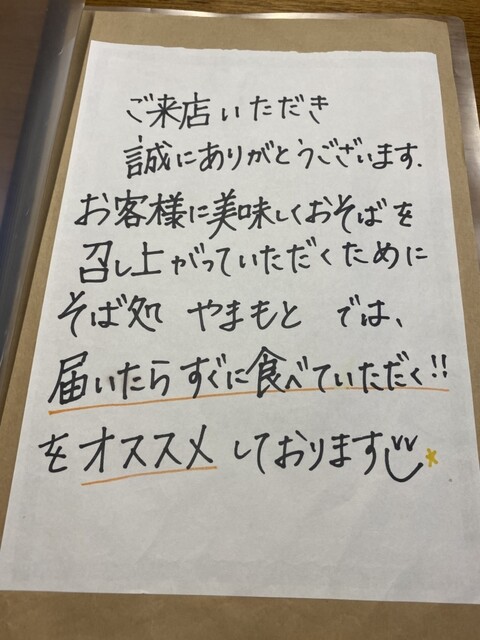 ご来店いただき
誠にありがとうございます.
お客様に美味しくおそばを
召し上がっていただくために
そば処 やまもと では、
届いたらすぐに食べていただく!!
をオススメしております